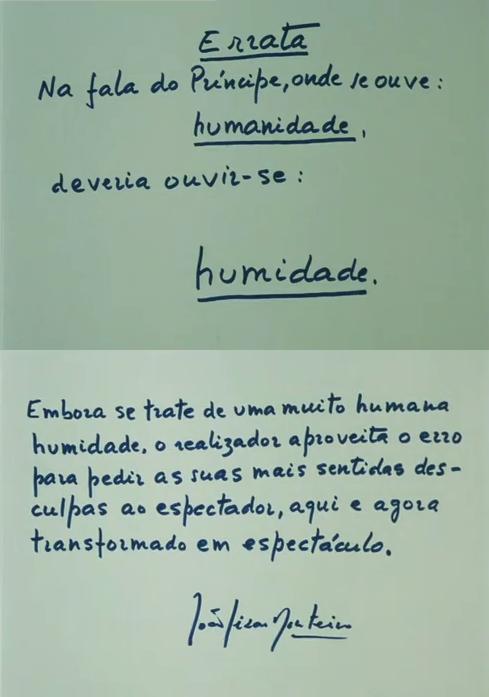 Errata
Na fala do Príncipe, onde se ouve:
humanidade,
deveria ouvir-se:
humidade.
Embora se trate de uma muito humana
humidade, o realizador aproveita o erro
para pedir as suas mais sentidas des-
culpas ao espectador, aqui e agora
transformado em espectáculo.
João César Monteiro